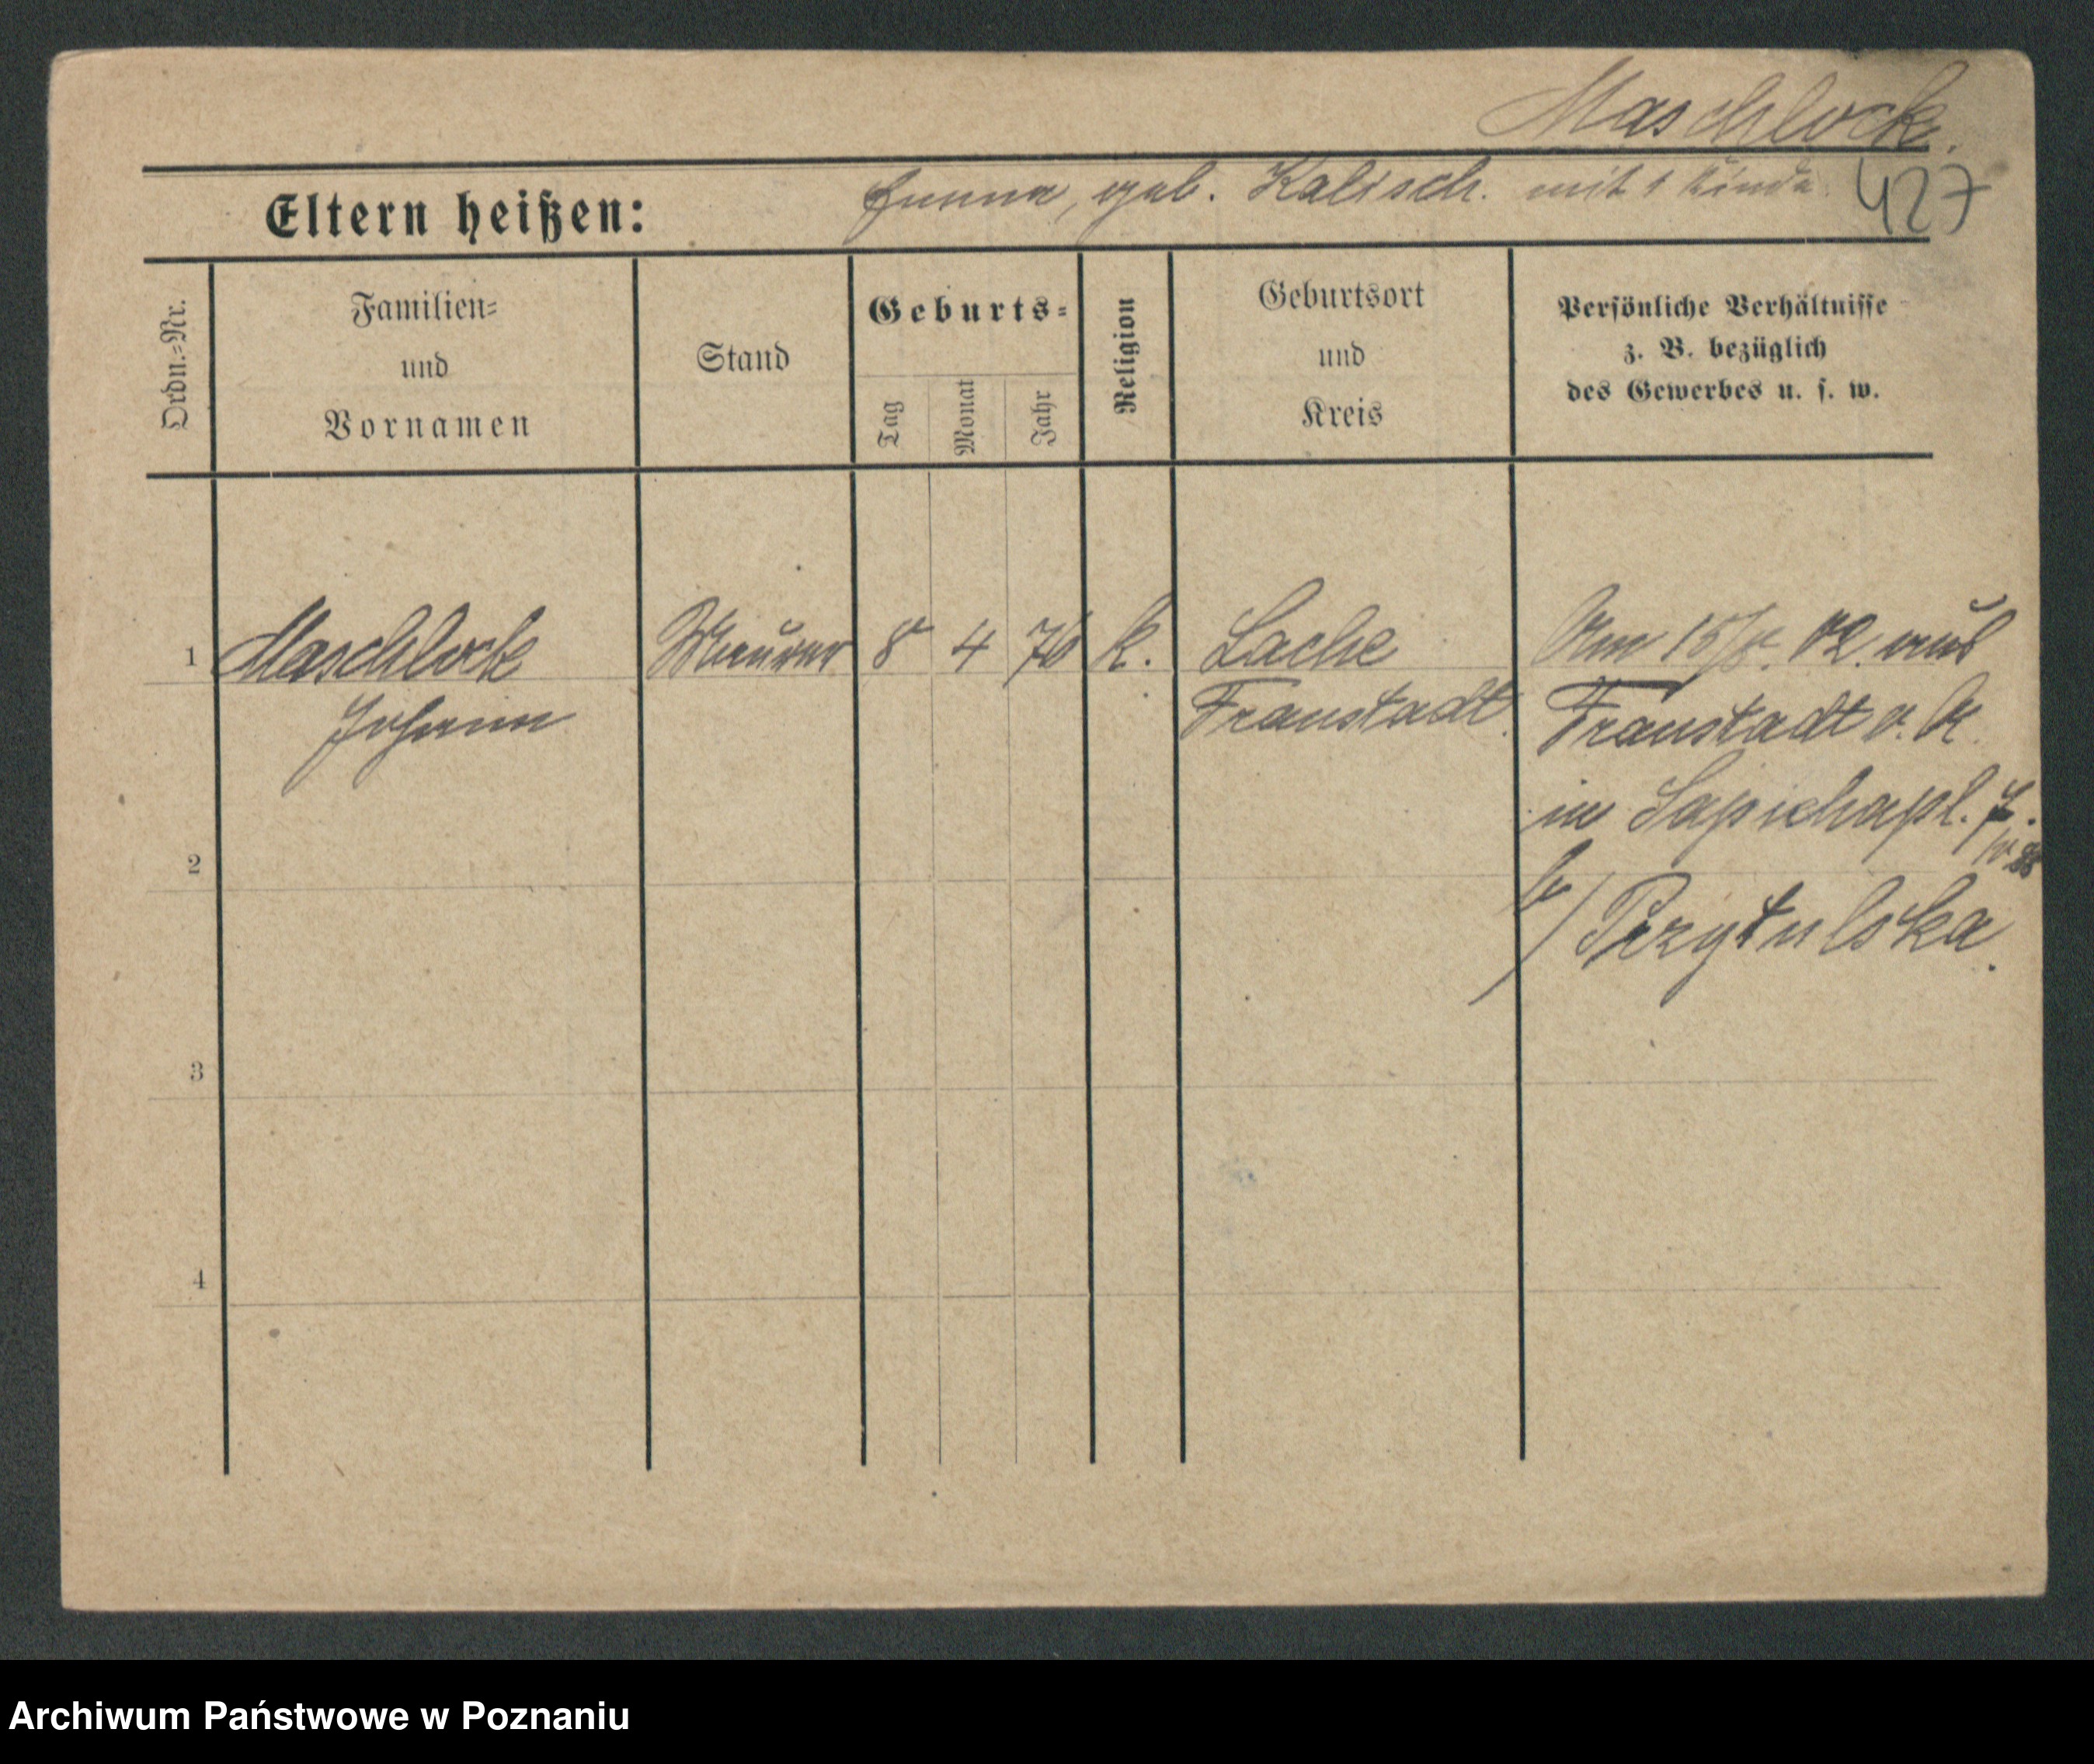 Maschlock.
Eltern heißen:
geb. Kalisch. mit 1 Kinde.
427
Ordn.=Nr.
Familien=
und
Vornamen
Stand
Geburts=
Tag
Monat
Jahr
Religion
Geburtsort
und
Kreis
Persönliche Verhältnisse
z. B. bezüglich
des Gewerbes u. s. w.
1 Maschlock Maurer 8 4 76 k. Lache Am 15/5. 02. aus
Johann Fraustadt. Fraustadt v. A.
im Sapiehapl. 7.
b/ Przytulska.
2
3
4
Archiwum Państwowe w Poznaniu